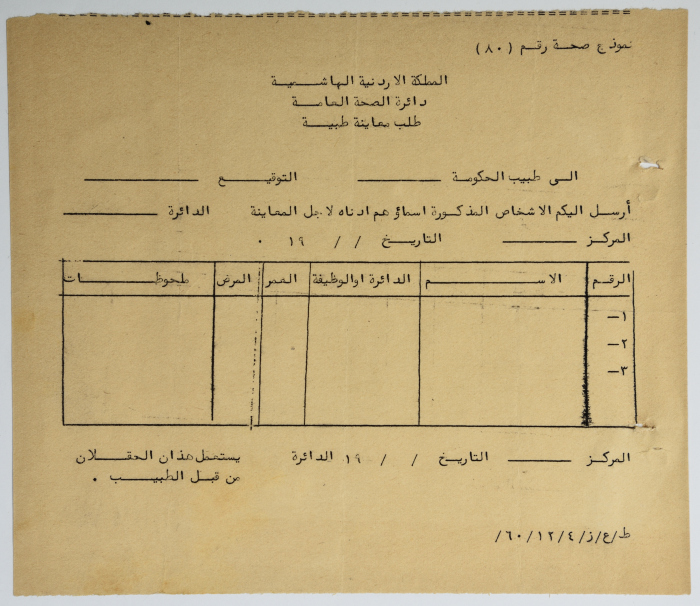 نموذج صحة رقم (٨٠)
المملكة الاردنية الهاشمية
دائرة الصحة العامة
طلب معاينة طبية
الى طبيب الحكومة ــــــــ التوقيع ــــــــ
أرسل اليكم الاشخاص المذكورة اسماؤهم ادناه لاجل المعاينة الدائرة ــــــــ
المركز ــــــــ التاريخ / / ١٩ .
الرقم الاسم الدائرة اوالوظيفة العمر المرض ملحوظات
١–
٢–
٣–
المركز ــــــــ التاريخ / / ١٩ الدائرة يستعمل هذان الحقلان
من قبل الطبيب .
ط/ع/ز/٤/١٢/٦٠/